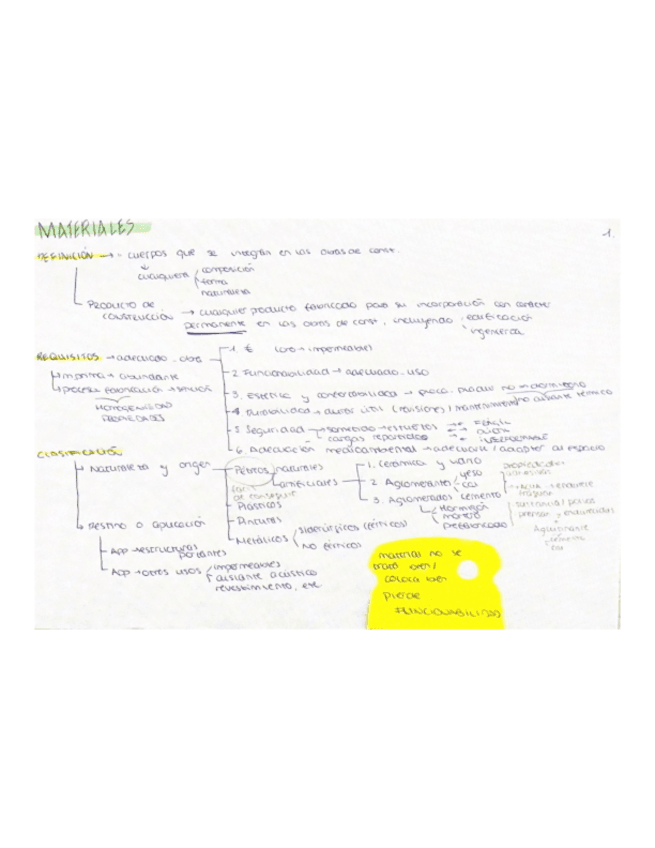 MATERIALES
1.
DEFINICIÓN → - cuerpos que se integran en las obras de const.
cualquiera
composición
forma
naturaleza
PRODUCTO DE CONSTRUCCIÓN → cualquier producto fabricado para su incorporación con carácter
permanente en las obras de const, incluyendo edificación
ingeniería
REQUISITOS → adecuado - obra
1 €
2 Funcionabilidad → adecuado - uso
3. Estética y confortabilidad →
aislante térmico
4 Durabilidad → años útil (revisiones / mantenimiento
5 Seguridad → sometido → esfuerzos
cargas repartidas
6. Adecuación medioambiental → adecuarse / adaptar al espacio
m. prima → abundante
proceso fabricación → sencillo
HOMOGENEIDAD
PROPIEDADES
CLASIFICACIÓN
Naturaleza y origen
Pétreos
naturales
artificiales
1. Cerámica y vidrio
2 Aglomerantes
yeso
cal
cemento
3. Aglomerados
Hormigón
mortero
prefabricado
fácil de conseguir
Plásticos
Pinturas
Metálicos
siderúrgicos (férricos)
no férricos
→ AGUA → endurece
fragua
Aglomerante
cemento
cal
Destino o aplicación
App → estructuras portantes
App → otros usos
impermeables
aislante acústico
revestimiento, etc
material no se
trata bien /
coloca bien
pierde
FUNCIONABILIDAD